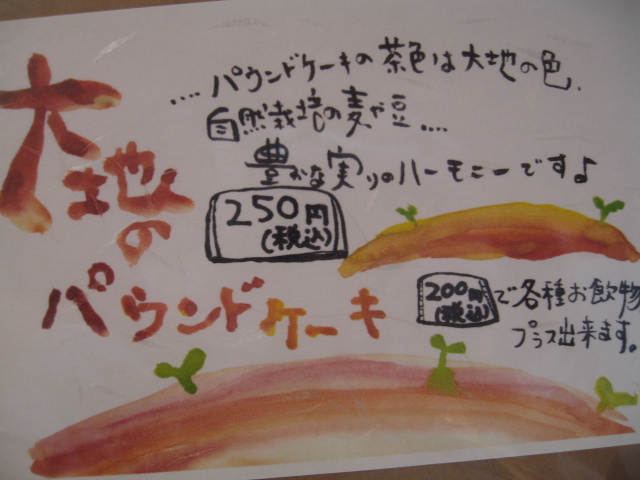 大地の
パウンドケーキ
‥‥パウンドケーキの茶色は大地の色、
自然栽培の麦や豆‥‥
豊かな実りのハーモニーです♪
250円
(税込)
200円
(税込)
で各種お飲物
プラス出来ます。